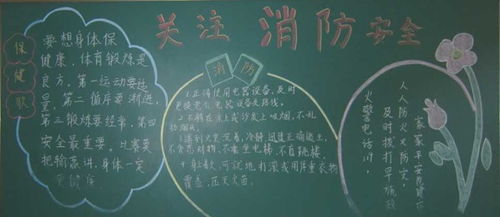 关注消防安全
保健歌
要想身体保
健康，体育锻炼是
良方。第一运动要适
量，第二循序要渐进，
第三锻炼要经常，第四
安全最重要。比赛莫
把输赢讲，身体一定
更健康
消防
1.正确使用电器设备，及时
更换老化电器设备及线路。
2.不躺在床上或沙发上吸烟，不乱
扔烟头。
3.遇到火灾沉着、冷静，迅速正确逃生，
不贪恋财物、不乘坐电梯、不盲目跳楼。
可就地打滚或用厚重衣物
覆盖，压灭火苗。
人人防火又防灾
家家平安
及时拨打早施救
火警电话119